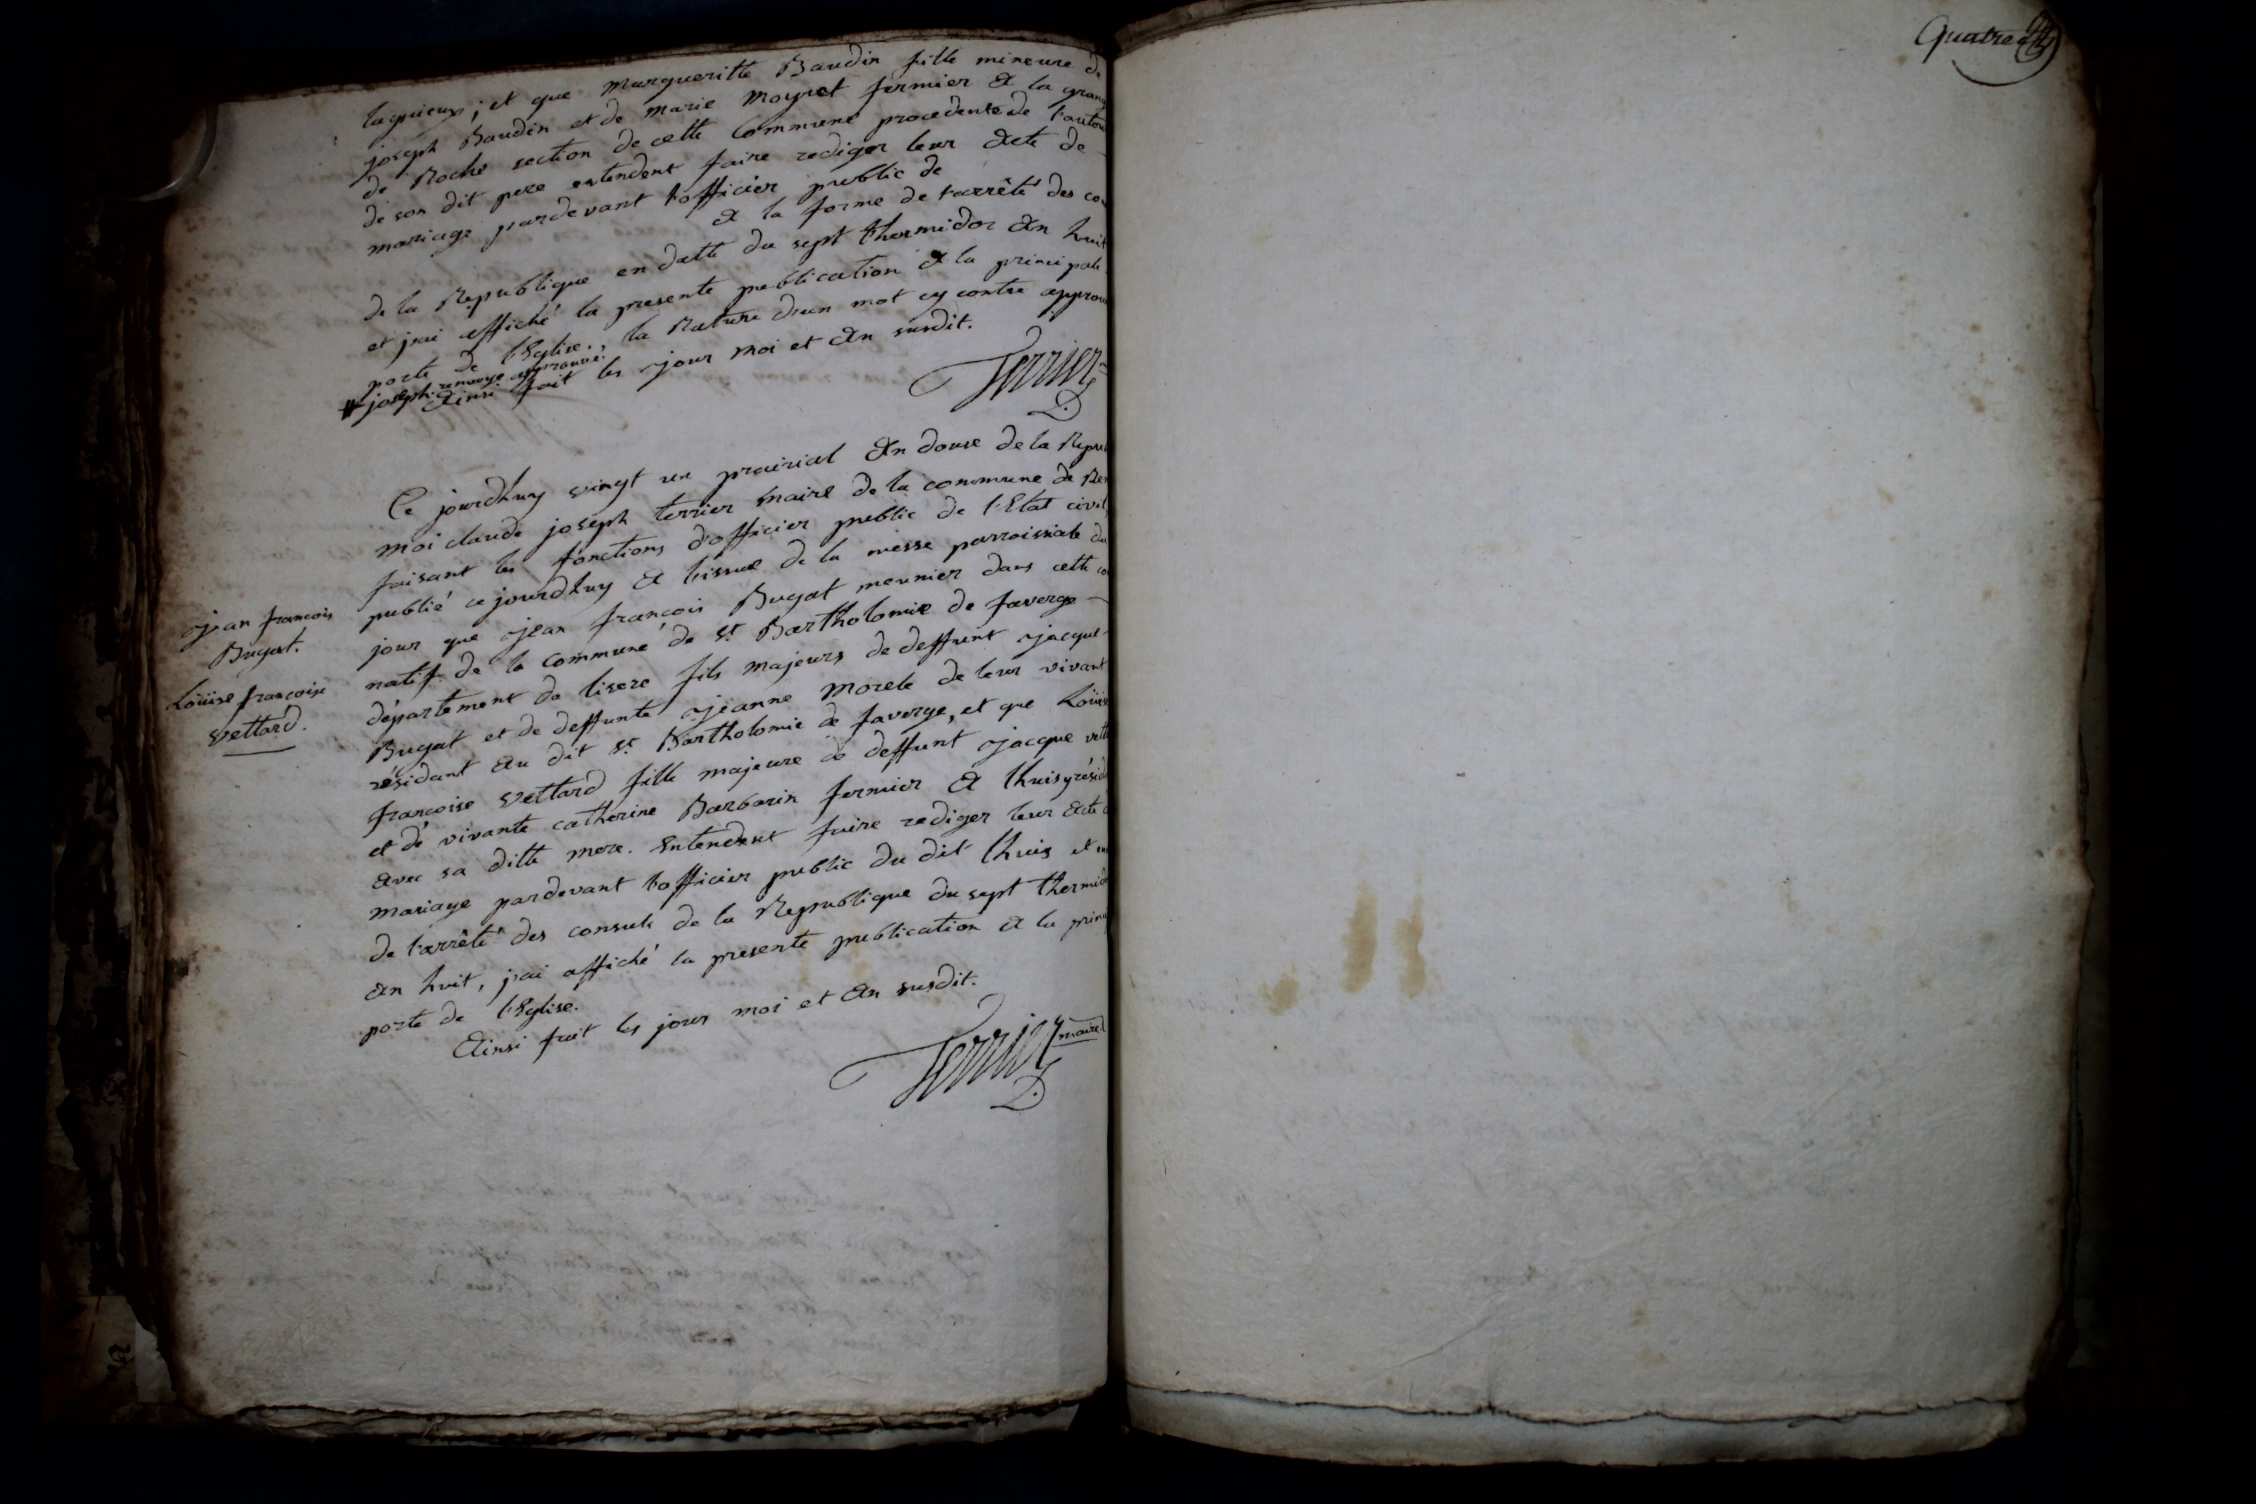 lagnieux; et que margueritte Baudin fille mineure de
joseph Baudin et de marie moynet fermier a la grang
de Roche section de cette commune procedente de l'autori
de son dit pere entendent faire rediger leur acte de
mariage pardevant l'officier public de
a la forme de l'arrêté des co
de la Republique en datte du sept thermidor an huit
et jai affiché la presente publication a la principale
porte de l'Eglise., la Rature d'un mot cy contre approu
# joseph. renvoye approuvé.
Ainsi fait les jour moi et an susdit.
Terrier
Ce jourdhuy vingt un prairial an douze de la Repub
moi claude joseph terrier maire de la commune de
faisant les fonctions d'officier public de l'Etat civil
publié ce jourdhuy a l'issue de la messe parroissiale du
jour que jean françois Bugat meunier dans cette co
natif de la commune de St Bartholomie de faverge
département de lisere fils majeurs de deffunt jacque
Bugat et de deffunte jeanne morele de leur vivant
résidant au dit St Bartholomie de faverge, et que Loüise
francoise vettard fille majeure de deffunt jacque vett
et de vivante catherine Barbarin fermier a lhuis y résid
avec sa ditte mere. Entendent faire rediger leur acte d
mariage pardevant l'officier public du dit lhuis et en
de l'arrêté des consuls de la Republique du sept thermido
an huit, jai affiché la presente publication a la princi
porte de l'Eglise.
Ainsi fait les jours moi et an susdit.
Terrier maire
jean francois
Bugat.
Loüise francoise
vettard.
Quatre